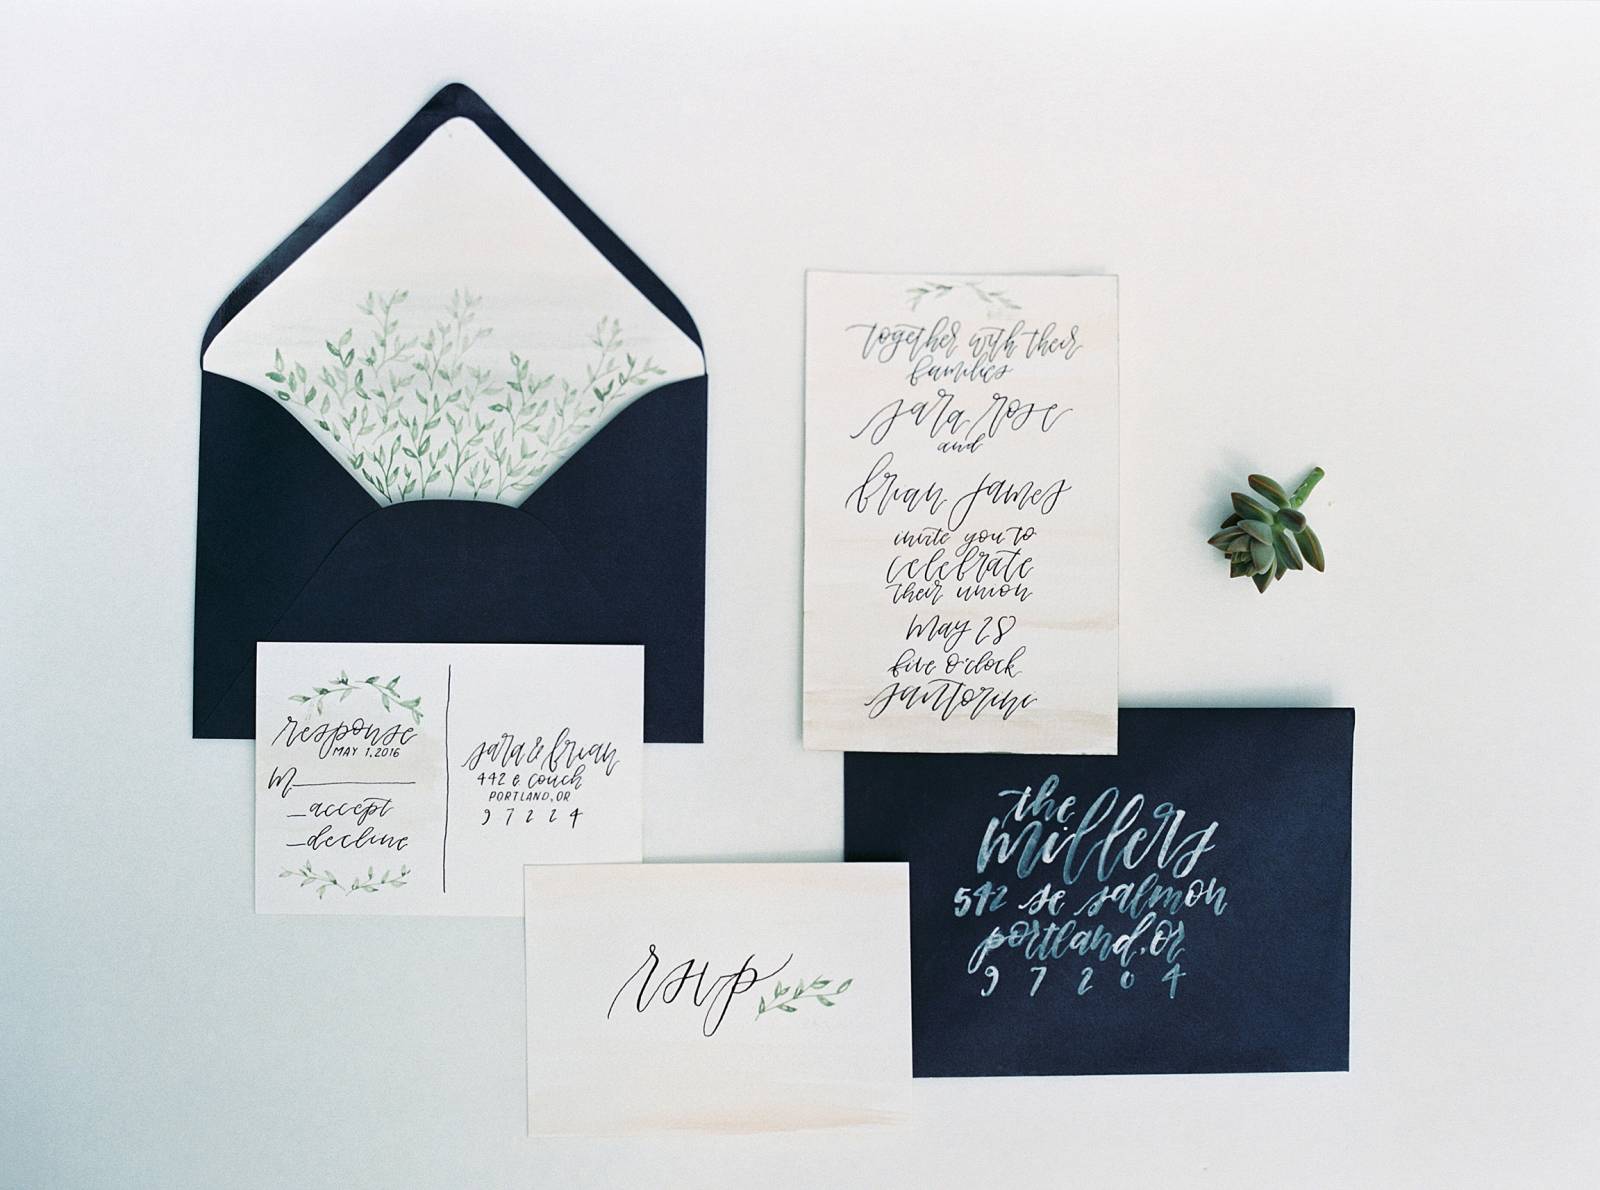 together with their
families
sara rose
and
brian james
invite you to
celebrate
their union
may 28
five o'clock
santorini
response
MAY 1, 2016
M
accept
decline
sara & brian
442 e. couch
PORTLAND, OR
97224
rsvp
the
millers
542 se salmon
portland, or
97204